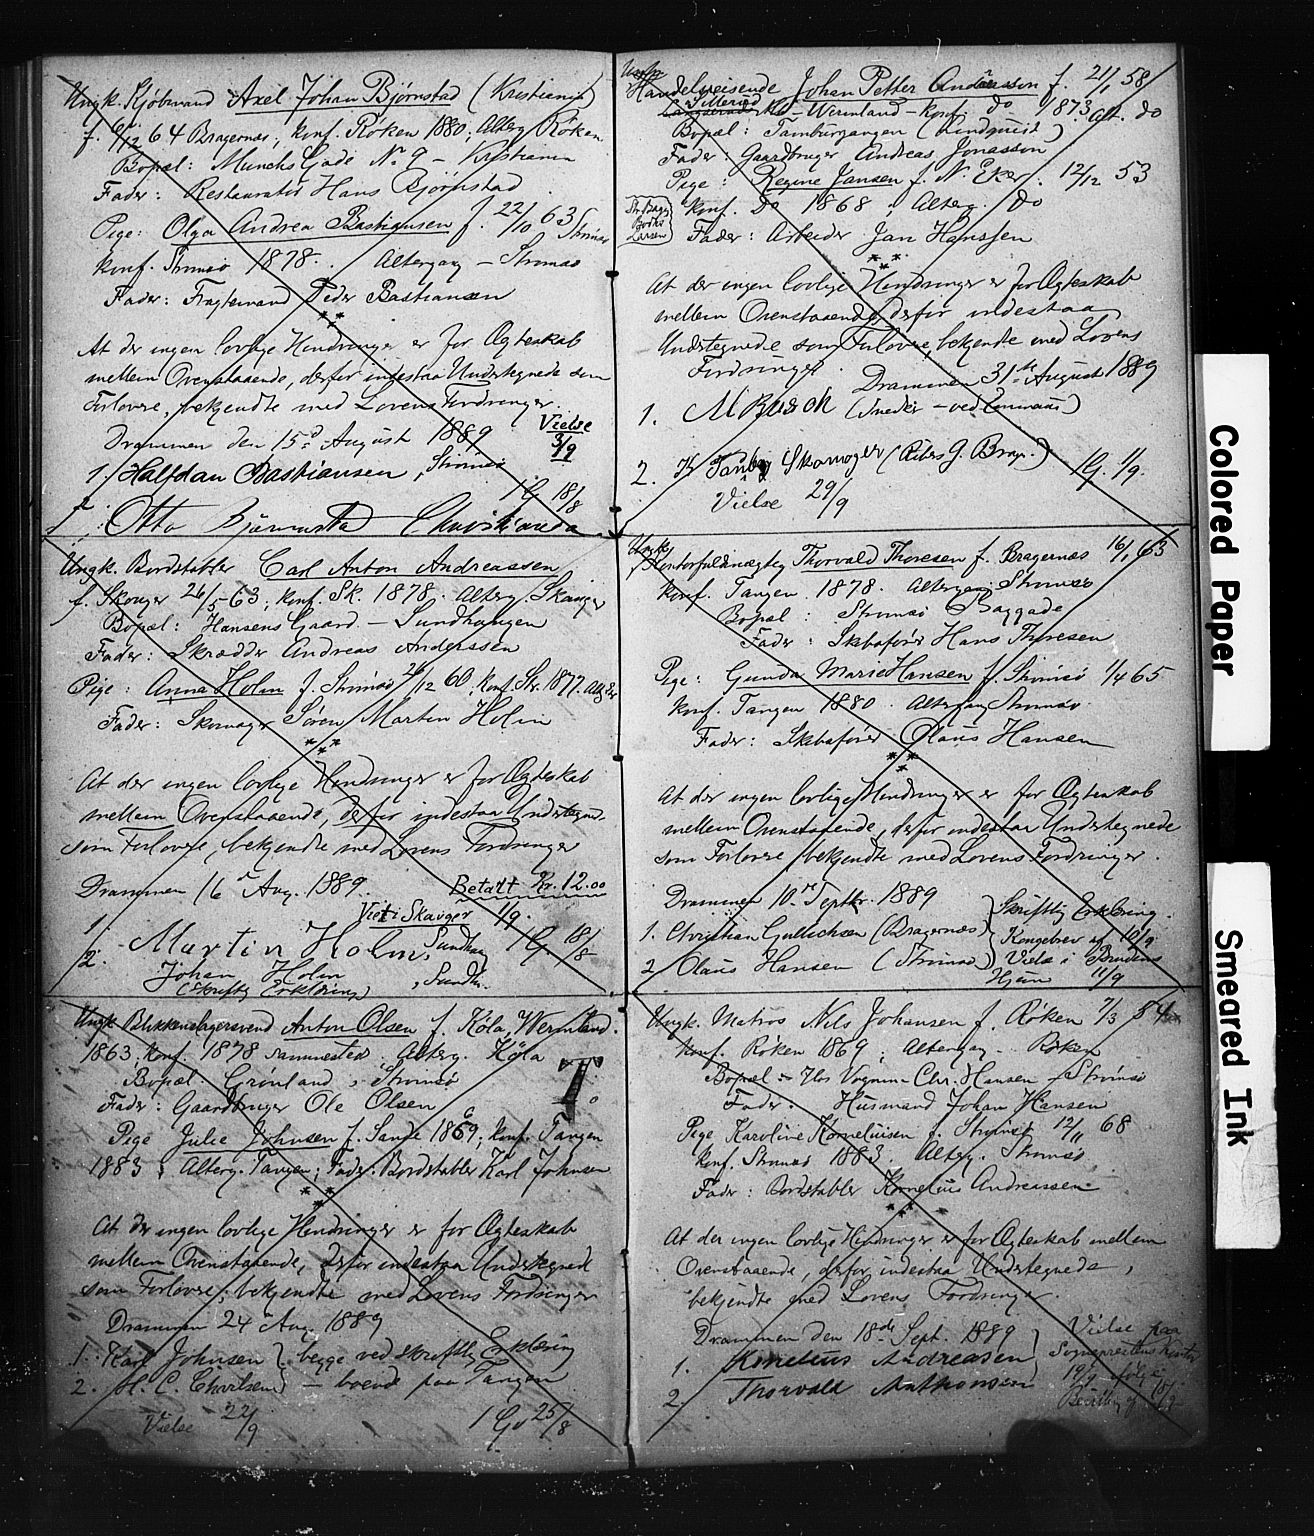 Ungk. Kjøbmand Axel Johan Bjørnstad (Kristiania)
f. 6/12 64 Bragernæs; konf. Røken 1880; Alterg. Røken
Bopæl: Munchs Gade No 9 - Kristiania
Fader: Restauratør Hans Bjørnstad
Pige: Olga Andrea Bastiansen f. 22/10 63 Strømsø
konf. Strømsø 1878. Altergang - Strømsø
Fader: Fragtemand Peder Bastiansen
At der ingen lovlige Hindringer er for Ægteskab
mellem Ovenstaaende, derfor indestaa Undertegnede som
Forlovere, bekjendte med Lovens Fordringer.
Drammen den 15d August 1889
Vielse
3/9
1. Halfdan Bastiansen, Strømsø
1 G. 18/8
2. Otto Bjørnstad Christiania
Ungk. Bordstabler Carl Anton Andreassen
f. Skouger 26/5 63; konf. Sk. 1878. Alterg. Skauger
Bopæl: Hansens Gaard - Sundhaugen
Fader: Skrædder Andreas Anderssen
Pige: Anna Holm f. Strømsø 26/12 60; konf. Str. 1877.
Fader: Skomager Søren Martin Holm
At der ingen lovlige Hindringer er for Ægteskab
mellem Ovenstaaende, derfor indestaa Undertegn.
som Forlovere, bekjendte med Lovens Fordringer
Drammen 16 Aug. 1889. Betalt Kr. 12.00
Viet i Skauger 1/9.
1. Martin Holm, Sundhaug 1 G. 18/8
2. Johan Holm, Sundh.
(Skriftlig Erklæring)
Ungk. Blikkenslagersvend Anton Olsen f. Köla, Wermland.
1863; konf. 1878 sammested. Alterg. Köla
Bopæl. Grønland, Strømsø
Fader: Gaardbruger Ole Olsen
T
Pige Julie Johnsen f. Sande 1869; konf. Tangen
1883; Alterg. Tangen; Fader: Bordstabler Karl Johnsen
At der ingen lovlige Hindringer er for Ægteskab
mellem Ovenstaaende, derfor indestaa Undertegned
som Forlovere, bekjendte med Lovens Fordringer
Drammen 24 Aug. 1889
1. Karl Johnsen } begge ved skriftlig Erklæring
2. H. C. Charlsen } - boende paa Tangen
Vielse 22/9 1 G. 25/8
Ungk.
Handelsreisende Johan Petter Andersson f. 21/1 58
Wermland - konf. do 1873 alt. do
Bopæl: Tamburgangen (Lindqvist)
Fader: Gaardbruger Andreas Jonasson
Pige: Regine Jansen f. N. Eker. 12/12 53
konf. do 1868; Alterg. do
Fader: Arbeider Jan Hanssen
At der ingen lovlige Hindringer er for Ægteskab
mellem Ovenstaaende, derfor indestaa
Undertegnede som Forlovere, bekjendte med Lovens
Fordringer. Drammen 31te August 1889
1. M Busch (Snedker - ved Emmaus)
2. Tandberg Skomager (Ribers G. Brag.) 1 G. 1/9.
Vielse 29/9
Ungk.
Kontorfuldmægtig Thorvald Thoresen f. Bragernæs 16/1 63
konf. Tangen 1878. Altergang Strømsø
Bopæl: Strømsø Baggade
Fader: Skibsfører Hans Thoresen
Pige: Gunda Marie Hansen f. Strømsø 1/4 65
konf. Tangen 1880. Altergang Strømsø.
Fader: Skibsfører Olaus Hansen
At der ingen lovlige Hindringer er for Ægteskab
mellem Ovenstaaende, derfor indestaa Undertegnede
som Forlovere, bekjendte med Lovens Fordringer.
Drammen 10. Septbr. 1889
1. Christian Gullichsen (Bragernæs)
2. Olaus Hansen (Strømsø)
Skriftlig Erklæring.
Kongebrev af 10/9
Vielse i Brudens
Hjem 11/9
Ungk. Matros Nils Johansen f. Røken 7/3 54
konf. Røken 1869; Altergang - Røken
Bopæl: - Hos Vognm. Chr. Hansen - Strømsø
Fader: Husmand Johan Hansen
Pige Karoline Korneliusen f. Strømsø 12/11 68
konf. Strømsø 1883. Alterg. Strømsø
Fader: Bordstabler Kornelius Andreassen
At der ingen lovlige Hindringer er for Ægteskab mellem
Ovenstaaende, derfor indestaa Undertegnede,
bekjendte med Lovens Fordringer.
Drammen den 18de Sept. 1889
1. Kornelius Andreasen
2. Thorvald
Vielse paa
Sognepræstens Kontor
19/9 ifølge
Colored Paper
Smeared Ink